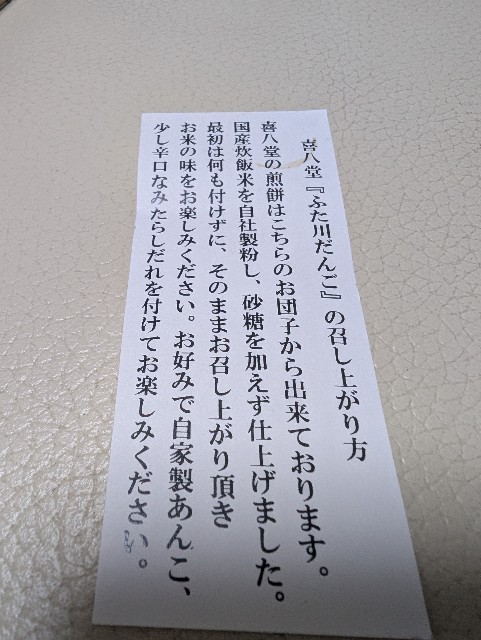 喜八堂『ふた川だんご』の召し上がり方
喜八堂の煎餅はこちらのお団子から出来ております。
国産炊飯米を自社製粉し、砂糖を加えず仕上げました。
最初は何も付けずに、そのままお召し上がり頂き
お米の味をお楽しみください。お好みで自家製あんこ、
少し辛口なみたらしだれを付けてお楽しみください。